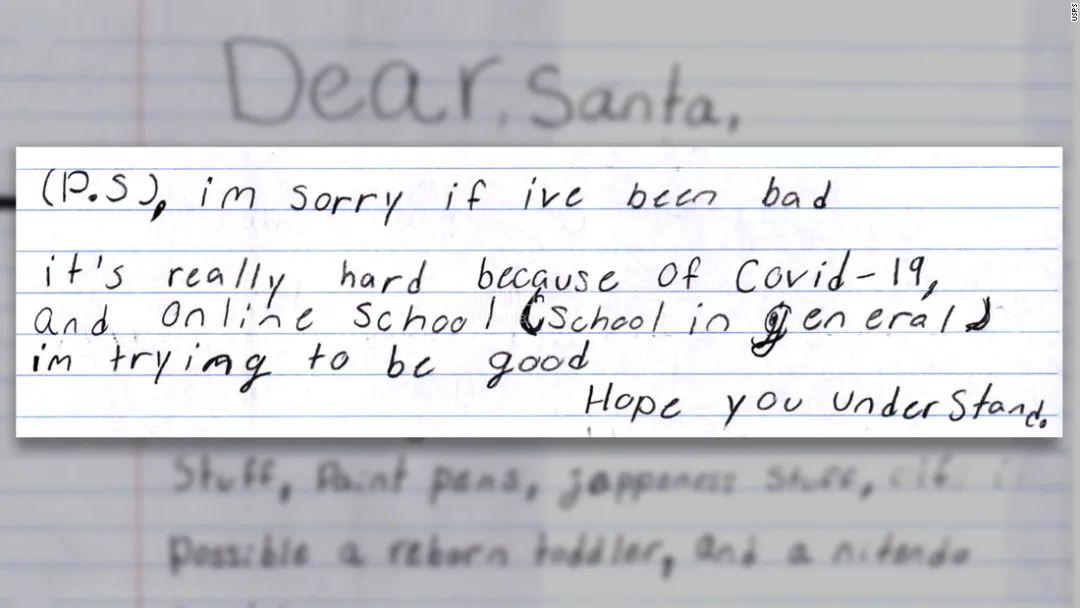 Dear, Santa,
(P.S), im sorry if ive been bad
it's really hard because of Covid-19,
and online School (School in general)
im trying to be good
Hope you understand.
Stuff, Paint pens, jappeness stuff, if
possible a reborn toddler, and a nitendo
USPS